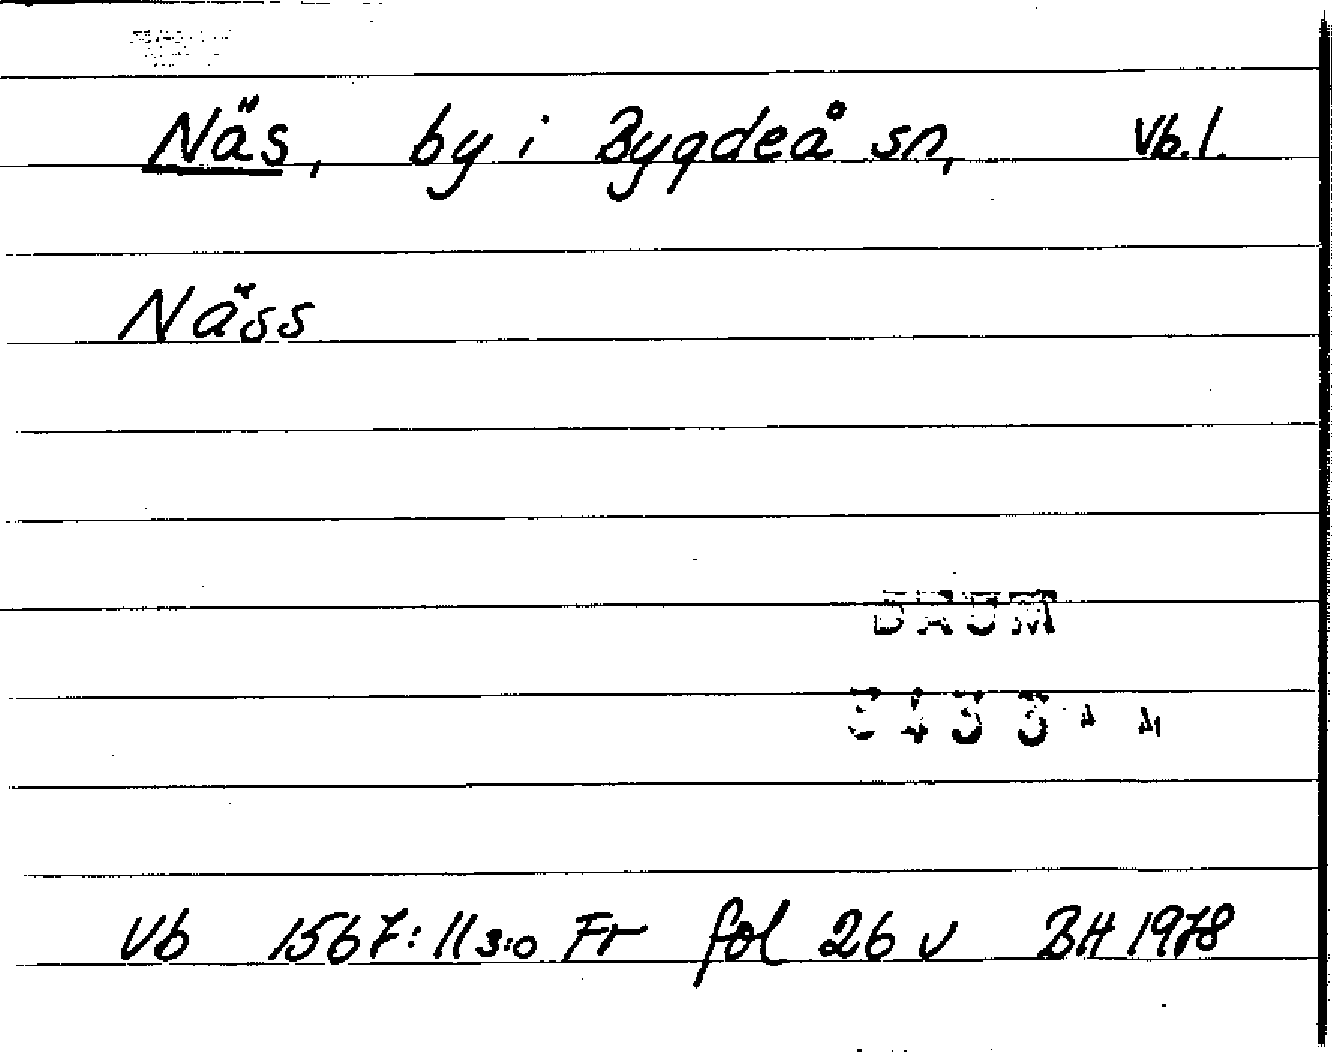 Näs, by i Bygdeå sn, Vb.l.
Näss
DAUM
Vb 1567:11 3:o Fr fol 26 v BH 1978